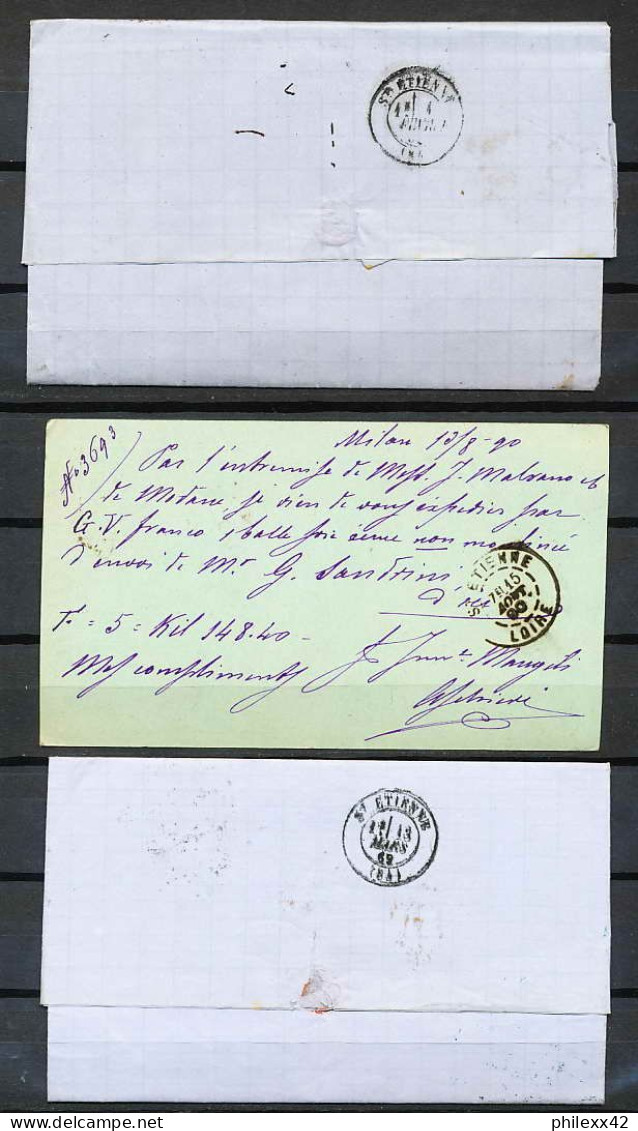 St ETIENNE
(84)
Milan 13/8-90
No 3693
Par l'entremise de Mess. J. Malvano et
de Modane je viens de vous expédier par
G. V. franco 1 balle soie écrue non moulinée
d'envoi de Mr G. Sandrini
St ETIENNE
7E 15
AOUT
90
LOIRE
T. = 5 = Kil 148.40 -
Mes compliments
St ETIENNE
13
MARS
69
(84)
delcampe.net
philexx42